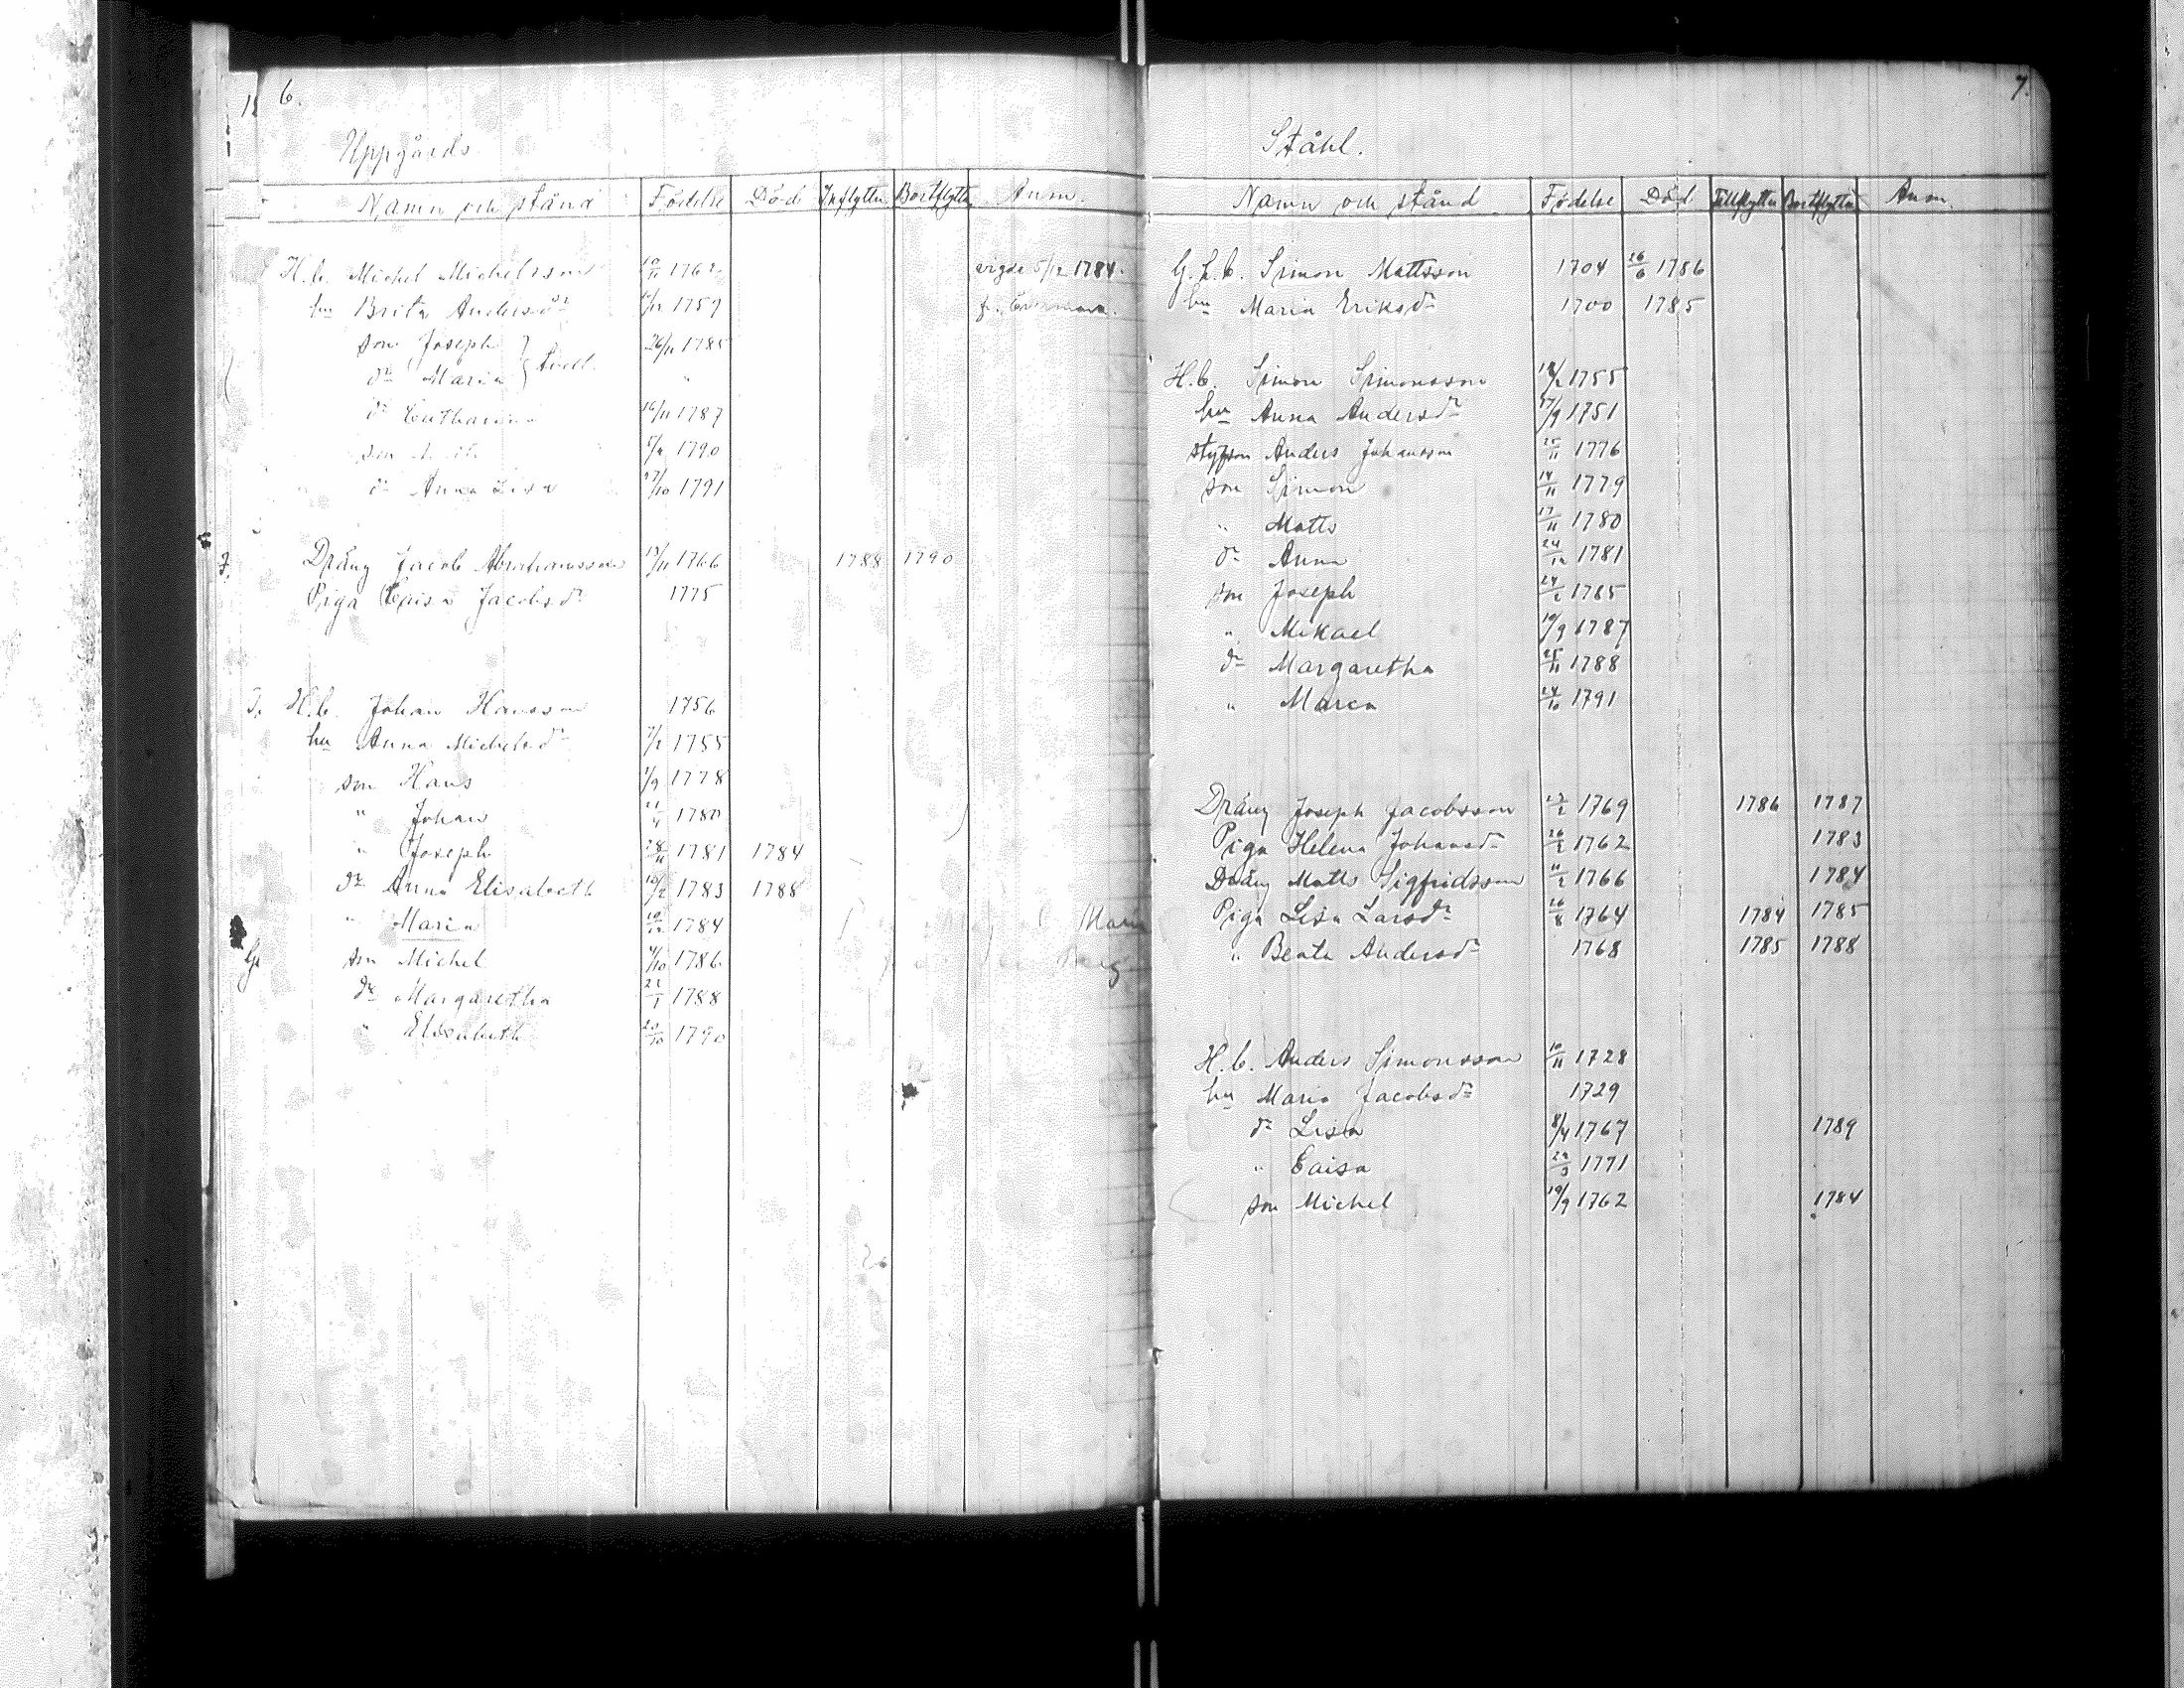 6.
Uppgårds
Namn och stånd Födelse Död Inflyttn Bortflyttn Anm.
H.b. Michel Michelsson 10/11 1762 vigde 5/12 1784.
hu Brita Andersdr 1759 fr.
son Joseph 26/11 1785
dr Maria "
dr Catharina 16/11 1787
son 1790
dr Anna Lisa 27/10 1791
Dräng Jacob Abrahamsson 13/11 1766 1788 1790
Piga Caisa Jacobsdr 1775
H.b. Johan Hansson 1756
hu Anna Michelsdr 7/2 1755
son Hans 1/9 1778
" Johan 21/4 1780
" Joseph 28/11 1781 1784
dr Anna Elisabeth 16/2 1783 1788
" Maria 1784
son Michel 4/10 1786
dr Margaretha 22/1 1788
" Elisabeth 20/10 1790
7.
Ståhl.
Namn och stånd Födelse Död Tillflyttn Bortflyttn Anm.
G.h.b. Simon Mattsson 1704 26/6 1786
hu Maria Eriksdr 1700 1785
H.b. Simon Simonsson 1755
hu Anna Andersdr 27/9 1751
styfson Anders Johansson 25/11 1776
son Simon 14/11 1779
" Matts 17/11 1780
dr Anna 24/12 1781
son Joseph 24/2 1785
" Mikael 19/9 1787
dr Margaretha 25/11 1788
" Maria 24/10 1791
Dräng Joseph Jacobsson 1769 1786 1787
Piga Helena Johansdr 1762 1783
Dräng Matts Sigfridsson 11/2 1766 1784
Piga Lisa Larsdr 16/8 1764 1784 1785
" Beata Andersdr 1768 1785 1788
H.b. Anders Simonsson 10/11 1728
hu Maria Jacobsdr 1729
dr Lisa 8/4 1767 1789
" Caisa 1771
son Michel 19/9 1762 1784